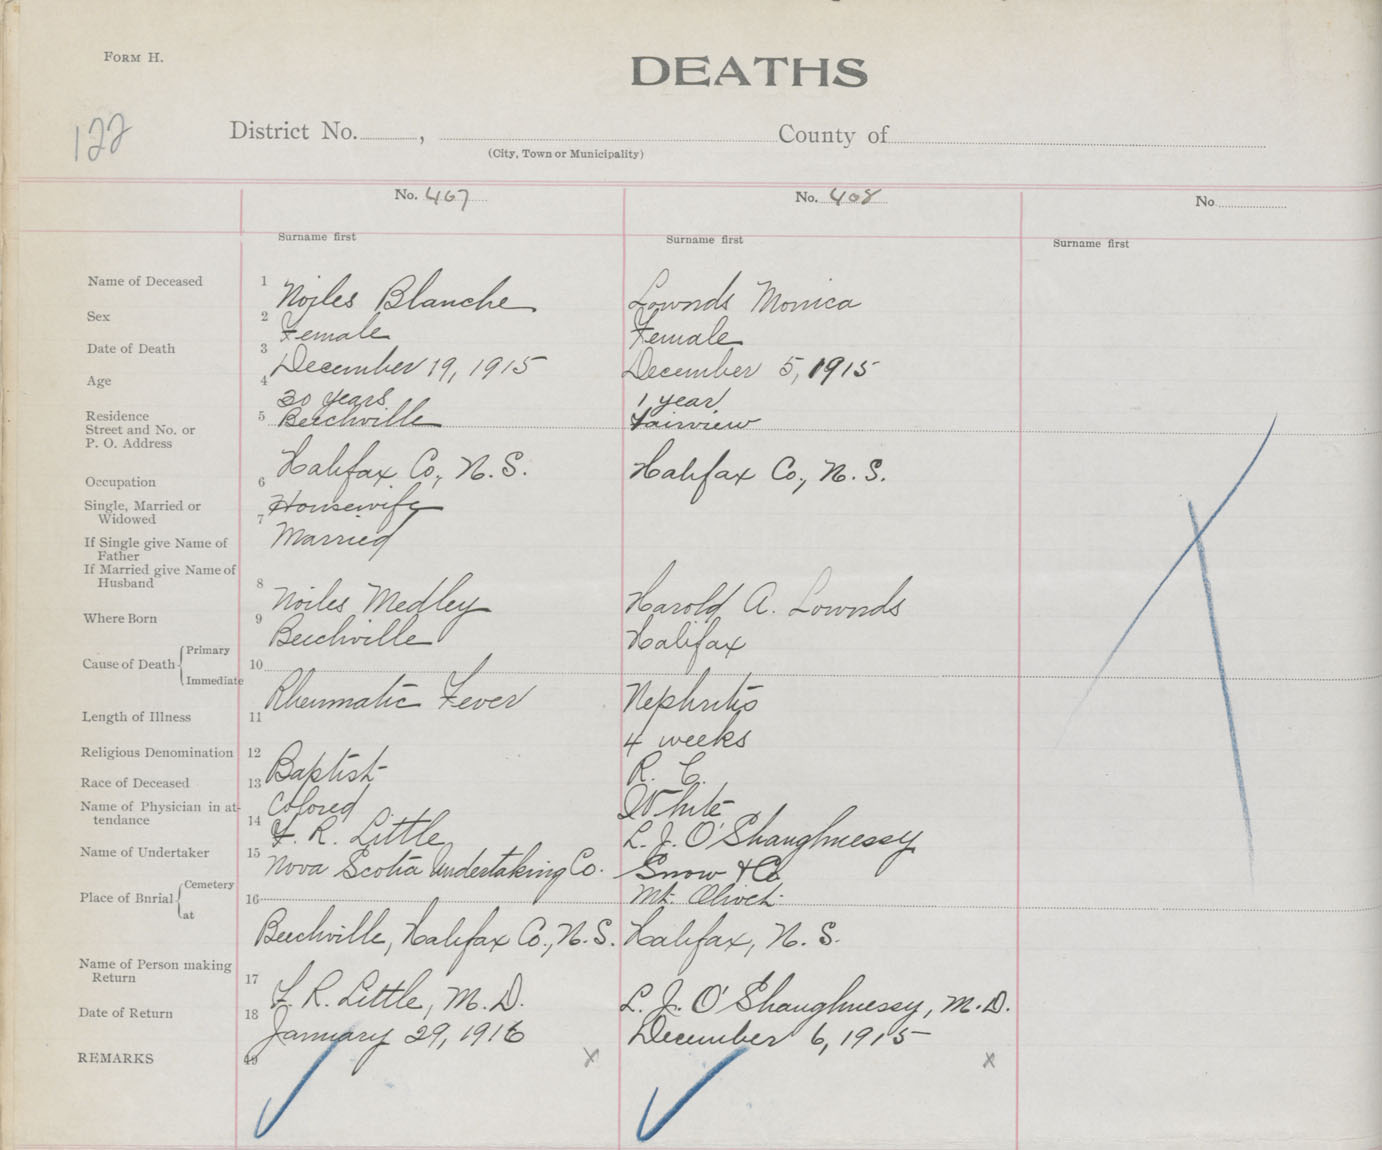 FORM H.
DEATHS
122
District No. , County of
(City, Town or Municipality)
No. 467 No. 408 No
Surname first Surname first Surname first
Name of Deceased 1 Noiles Blanche Lownds Monica
Sex 2 Female Female
Date of Death 3 December 19, 1915 December 5, 1915
Age 4 30 years 1 year
Residence
Street and No. or 5 Beechville Fairview
P. O. Address
Halifax Co., N. S. Halifax Co., N. S.
Occupation 6 Housewife
Single, Married or
Widowed 7 Married
If Single give Name of
Father
If Married give Name of
Husband 8 Noiles Medley Harold A. Lownds
Where Born 9 Beechville Halifax
Cause of Death Primary 10
Immediate Rheumatic Fever Nephritis
Length of Illness 11 4 weeks
Religious Denomination 12 Baptist R. C.
Race of Deceased 13 Colored White
Name of Physician in at-
tendance 14 F. R. Little L. J. O'Shaughnessy
Name of Undertaker 15 Nova Scotia Undertaking Co. Snow & Co
Place of Burial Cemetery 16 Mt. Olivet
at Beechville, Halifax Co., N. S. Halifax, N. S.
Name of Person making
Return 17 F. R. Little, M. D. L. J. O'Shaughnessy, M. D.
Date of Return 18 January 29, 1916 December 6, 1915
REMARKS 19 x x